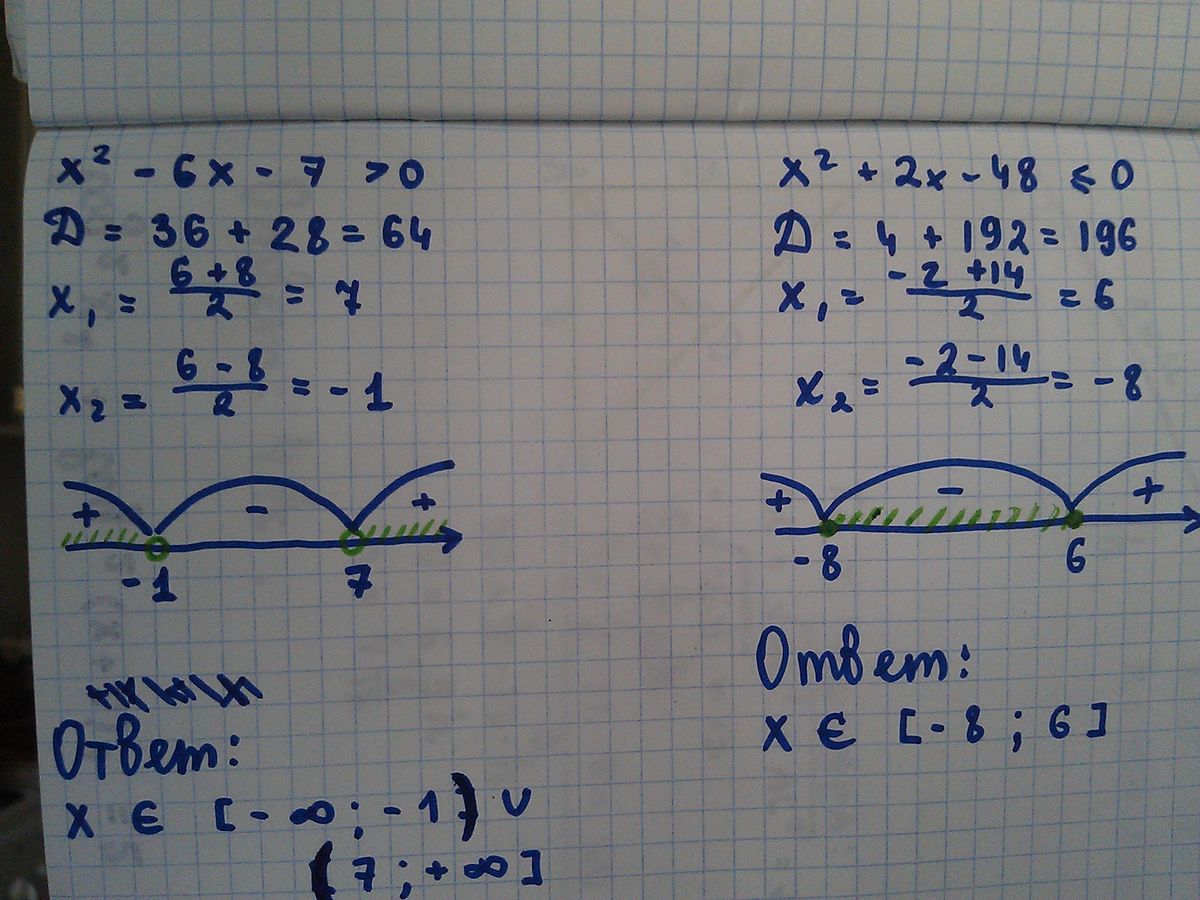 x² - 6x - 7 > 0
D = 36 + 28 = 64
x₁ = (6 + 8)/2 = 7
x₂ = (6 - 8)/2 = - 1
+ - +
- 1 7
Ответ:
x ∈ [- ∞ ; - 1) ∪
(7 ; + ∞]
x² + 2x - 48 ≤ 0
D = 4 + 192 = 196
x₁ = (- 2 + 14)/2 = 6
x₂ = (- 2 - 14)/2 = - 8
+ - +
- 8 6
Ответ:
x ∈ [- 8 ; 6]